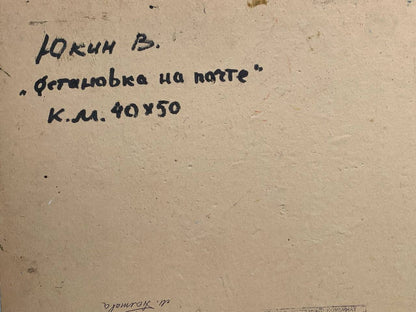 Юкин В.
„Остановка на почте"
К.М. 40х50